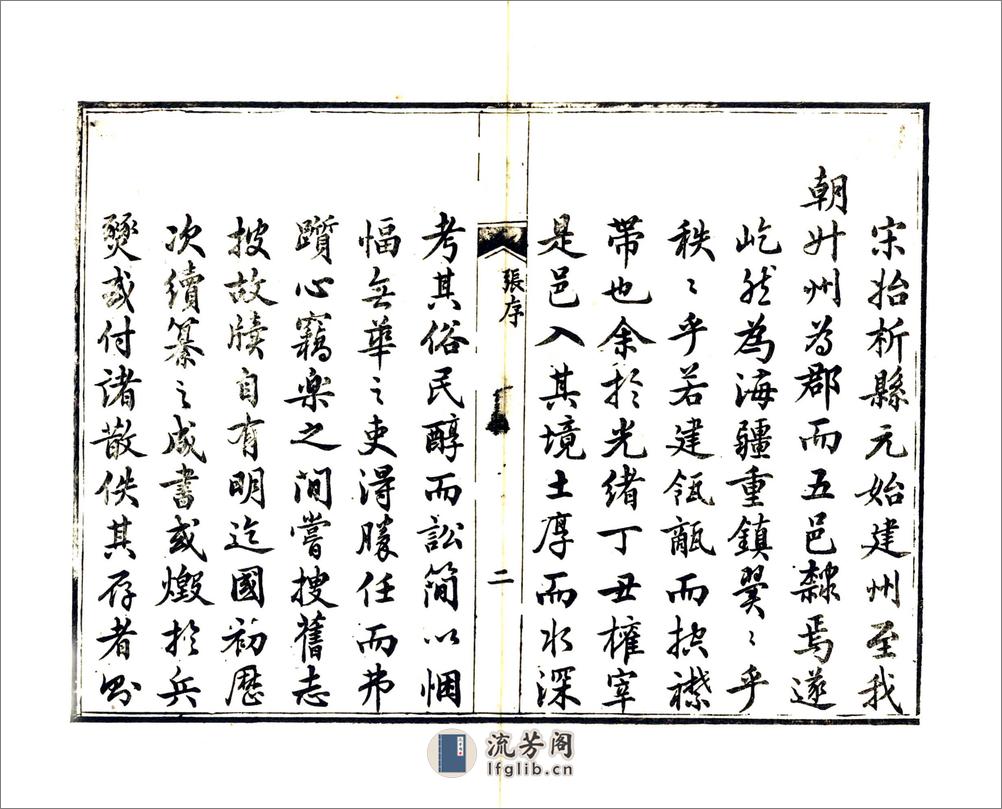 宋始析縣元始建州至我
朝升州為郡而五邑隸焉遂
屹然為海疆重鎮翼〻乎
秩〻乎若建瓴甋而控襟
帶也余於光緒丁丑權宰
是邑入其境土厚而水深
張序
二
考其俗民醇而訟簡以悃
愊無華之吏得勝任而弗
躓心竊樂之間嘗搜舊志
披故牘自有明迄國初歷
次續纂之成書或燬於兵
燹或付諸散佚其存者則
流芳阁
lfglib.cn